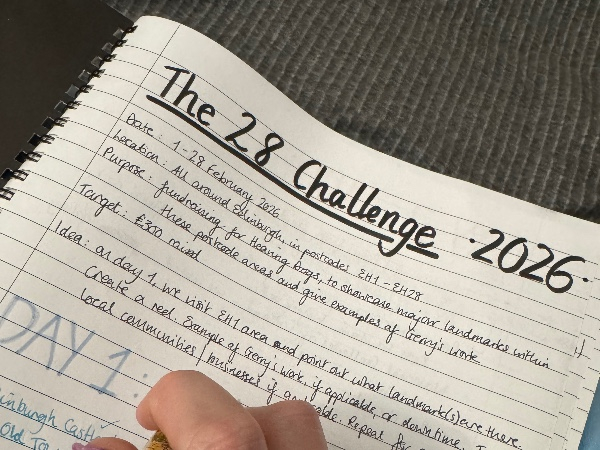 The 28 Challenge ·2026·
Date: 1-28 February 2026
Location: All around Edinburgh, in postcodes EH1 - EH28
Purpose: fundraising for Hearing Dogs, to showcase major landmarks within
these postcode areas and give examples of Gerry's work
Target: £300 raised
Idea: on day 1, we visit EH1 area and point out what landmark(s) are there.
Create a reel. Example of Gerry's work, if applicable, or downtime.
local communities/businesses if Repeat for
DAY 1:
Edinburgh Castle
Old